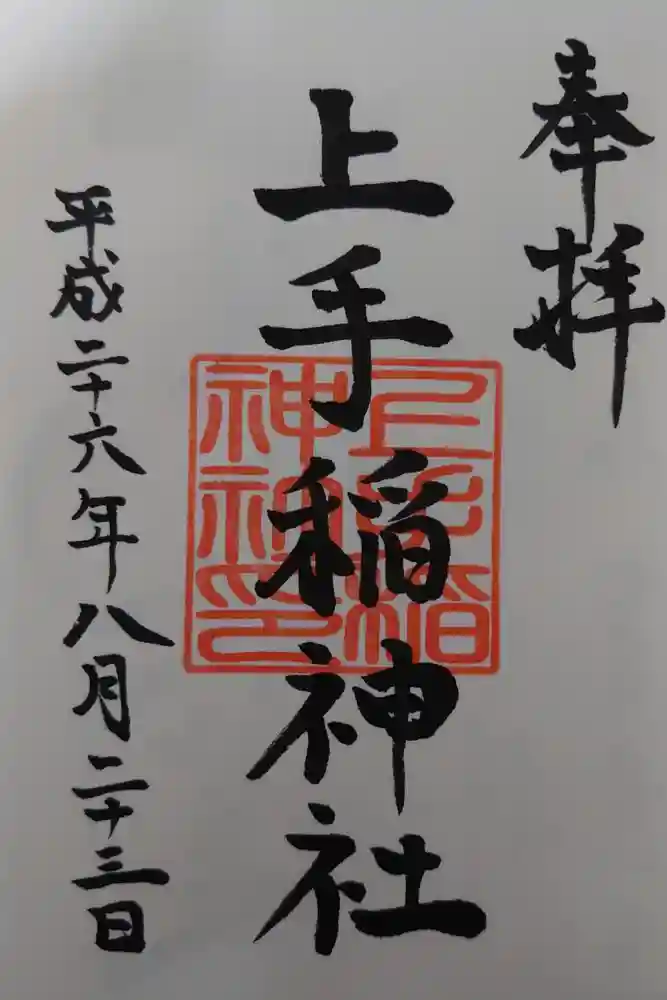 奉拝
上手稲神社
上手稲神社印
平成二十六年八月二十三日